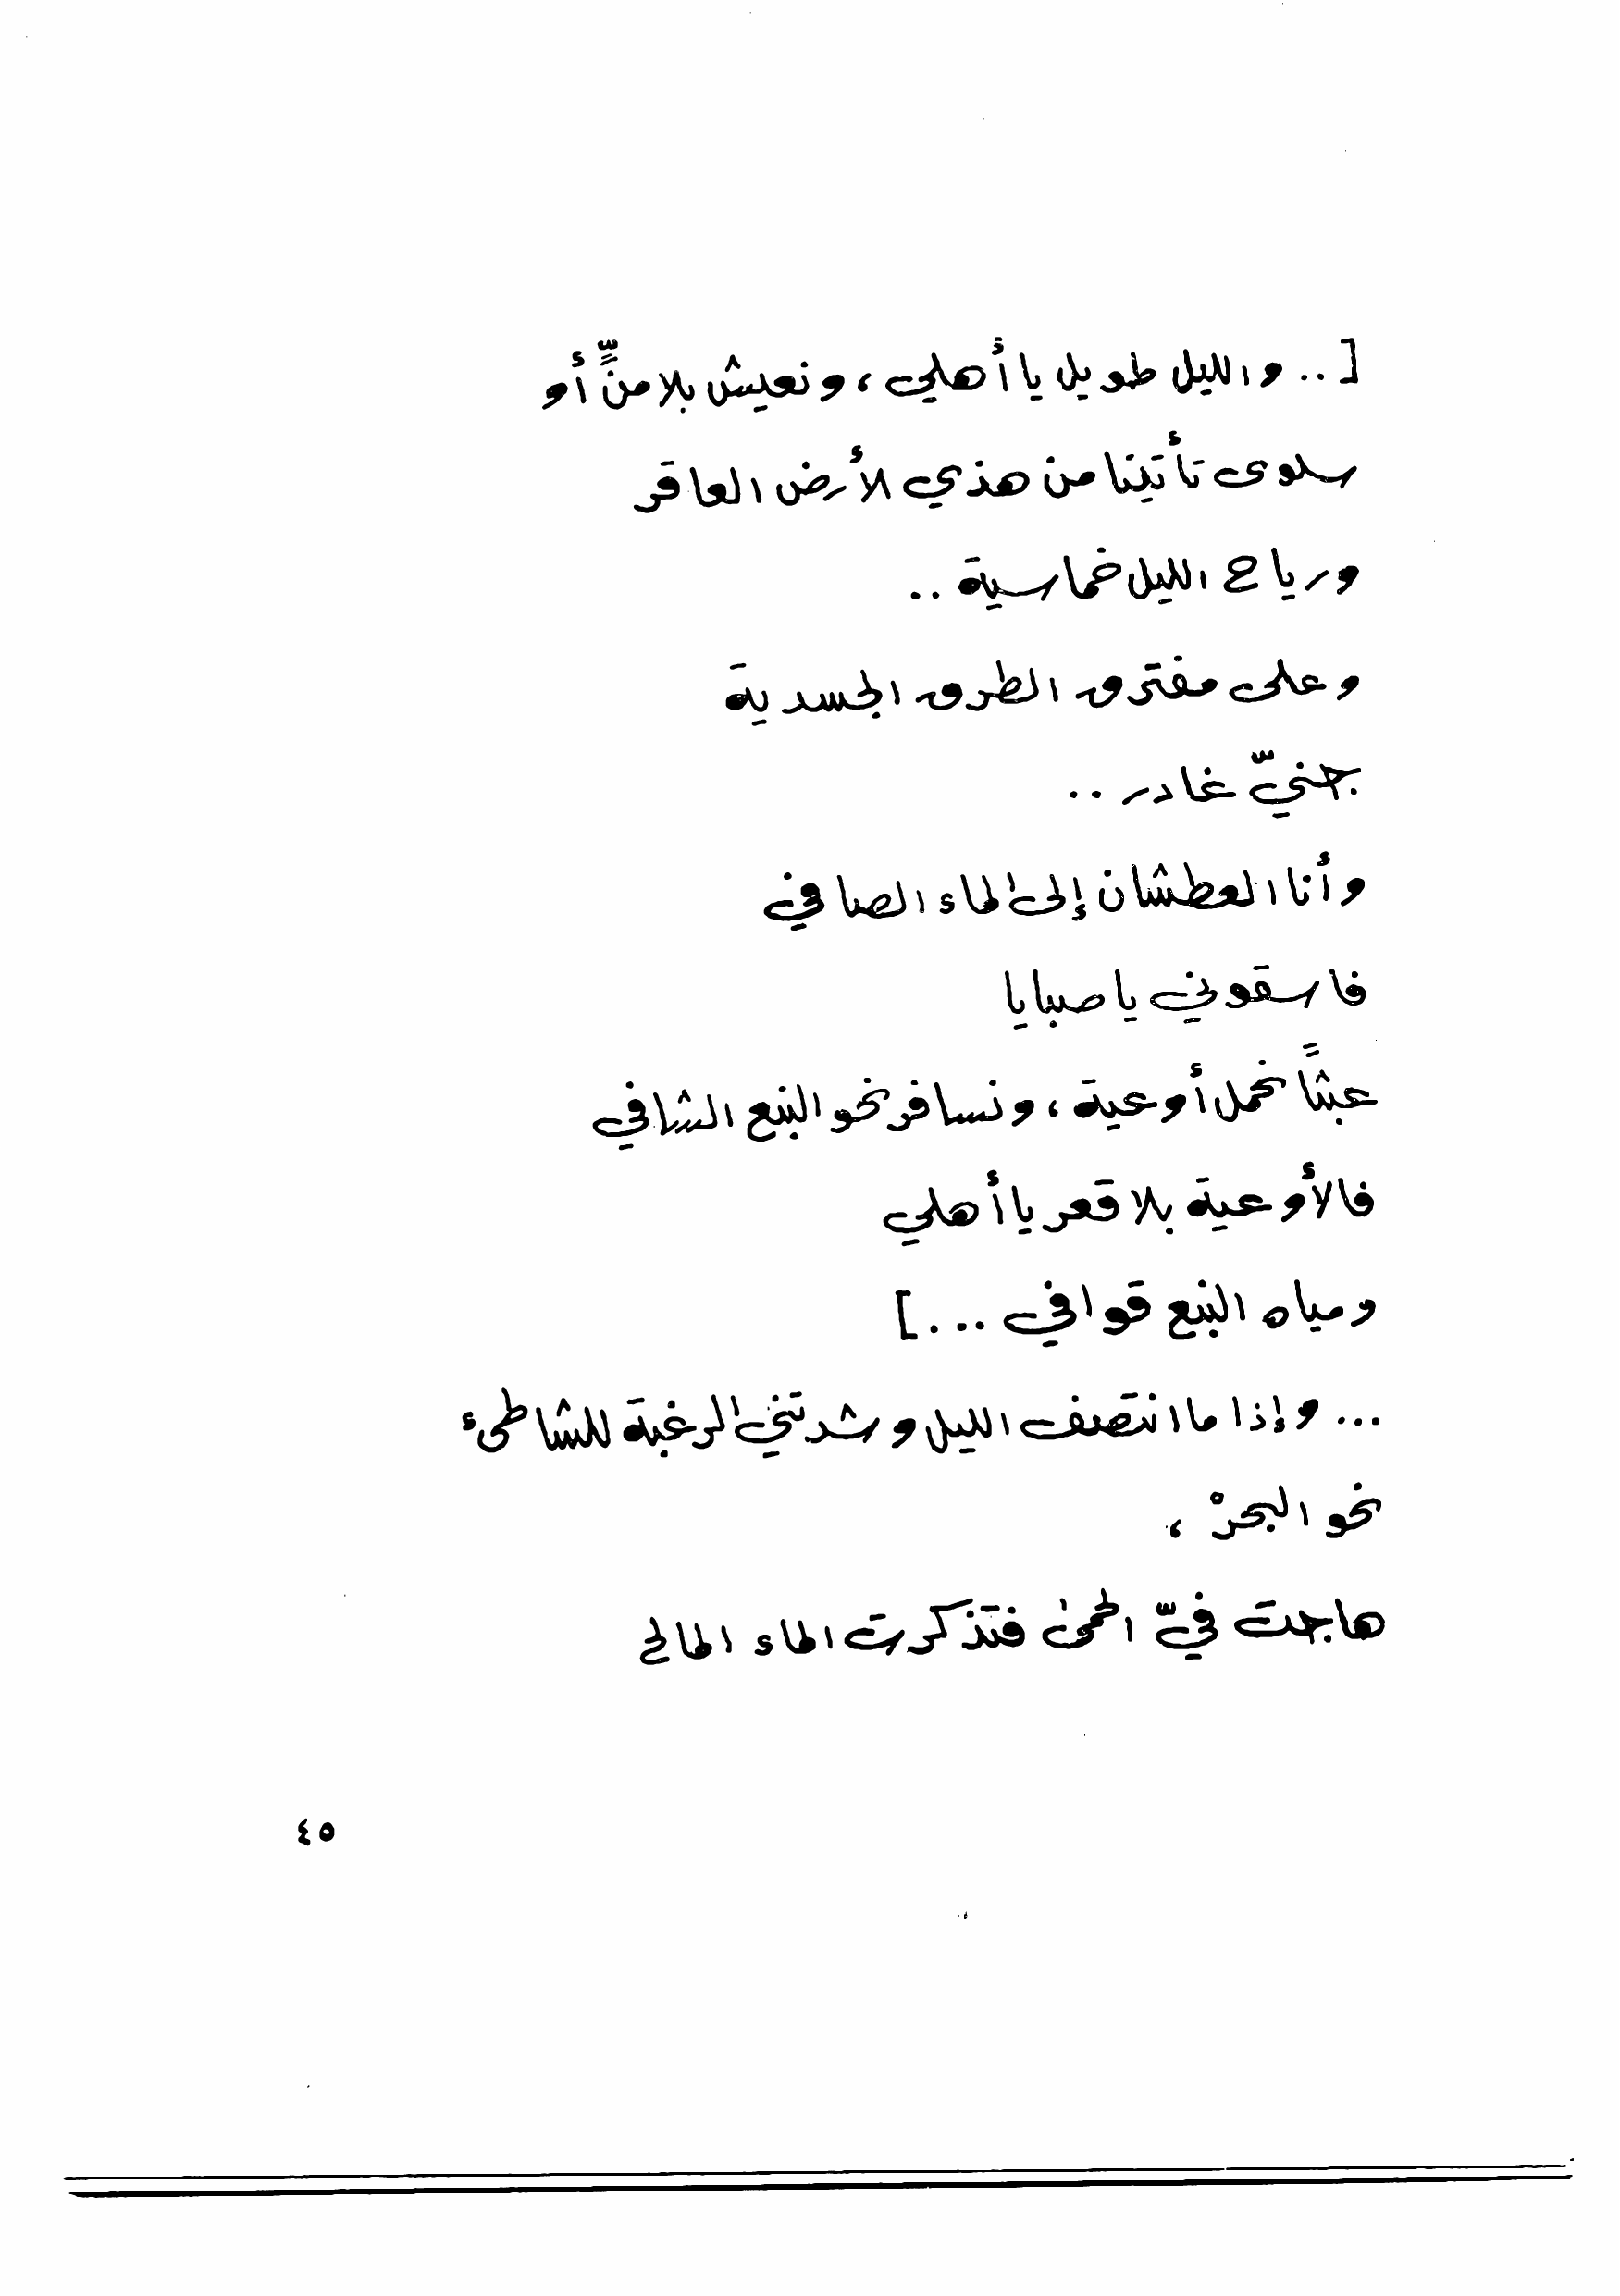 [ .. والليل طويل يا أهلي ، ونعيش بلا منٍّ أو
سلوى تأتينا من هذي الأرض العاقر
ورياح الليل خماسية ..
وعلى مفترق الطرق الجسدية
جنيّ غادر ..
وأنا العطشان إلى الماء الصافي
فاسقوني يا صبايا
عبثاً نحمل أوعية ، ونسافر نحو النبع الشافي
فالأوعية بلا قعر يا أهلي
ومياه النبع قوافي ... ]
... وإذا ما انتصف الليل وشدتني الرغبة للشاطىء
نحو البحرْ ،
هاجت فيّ الحمىٰ فتذكرت الماء المالح
٤٥